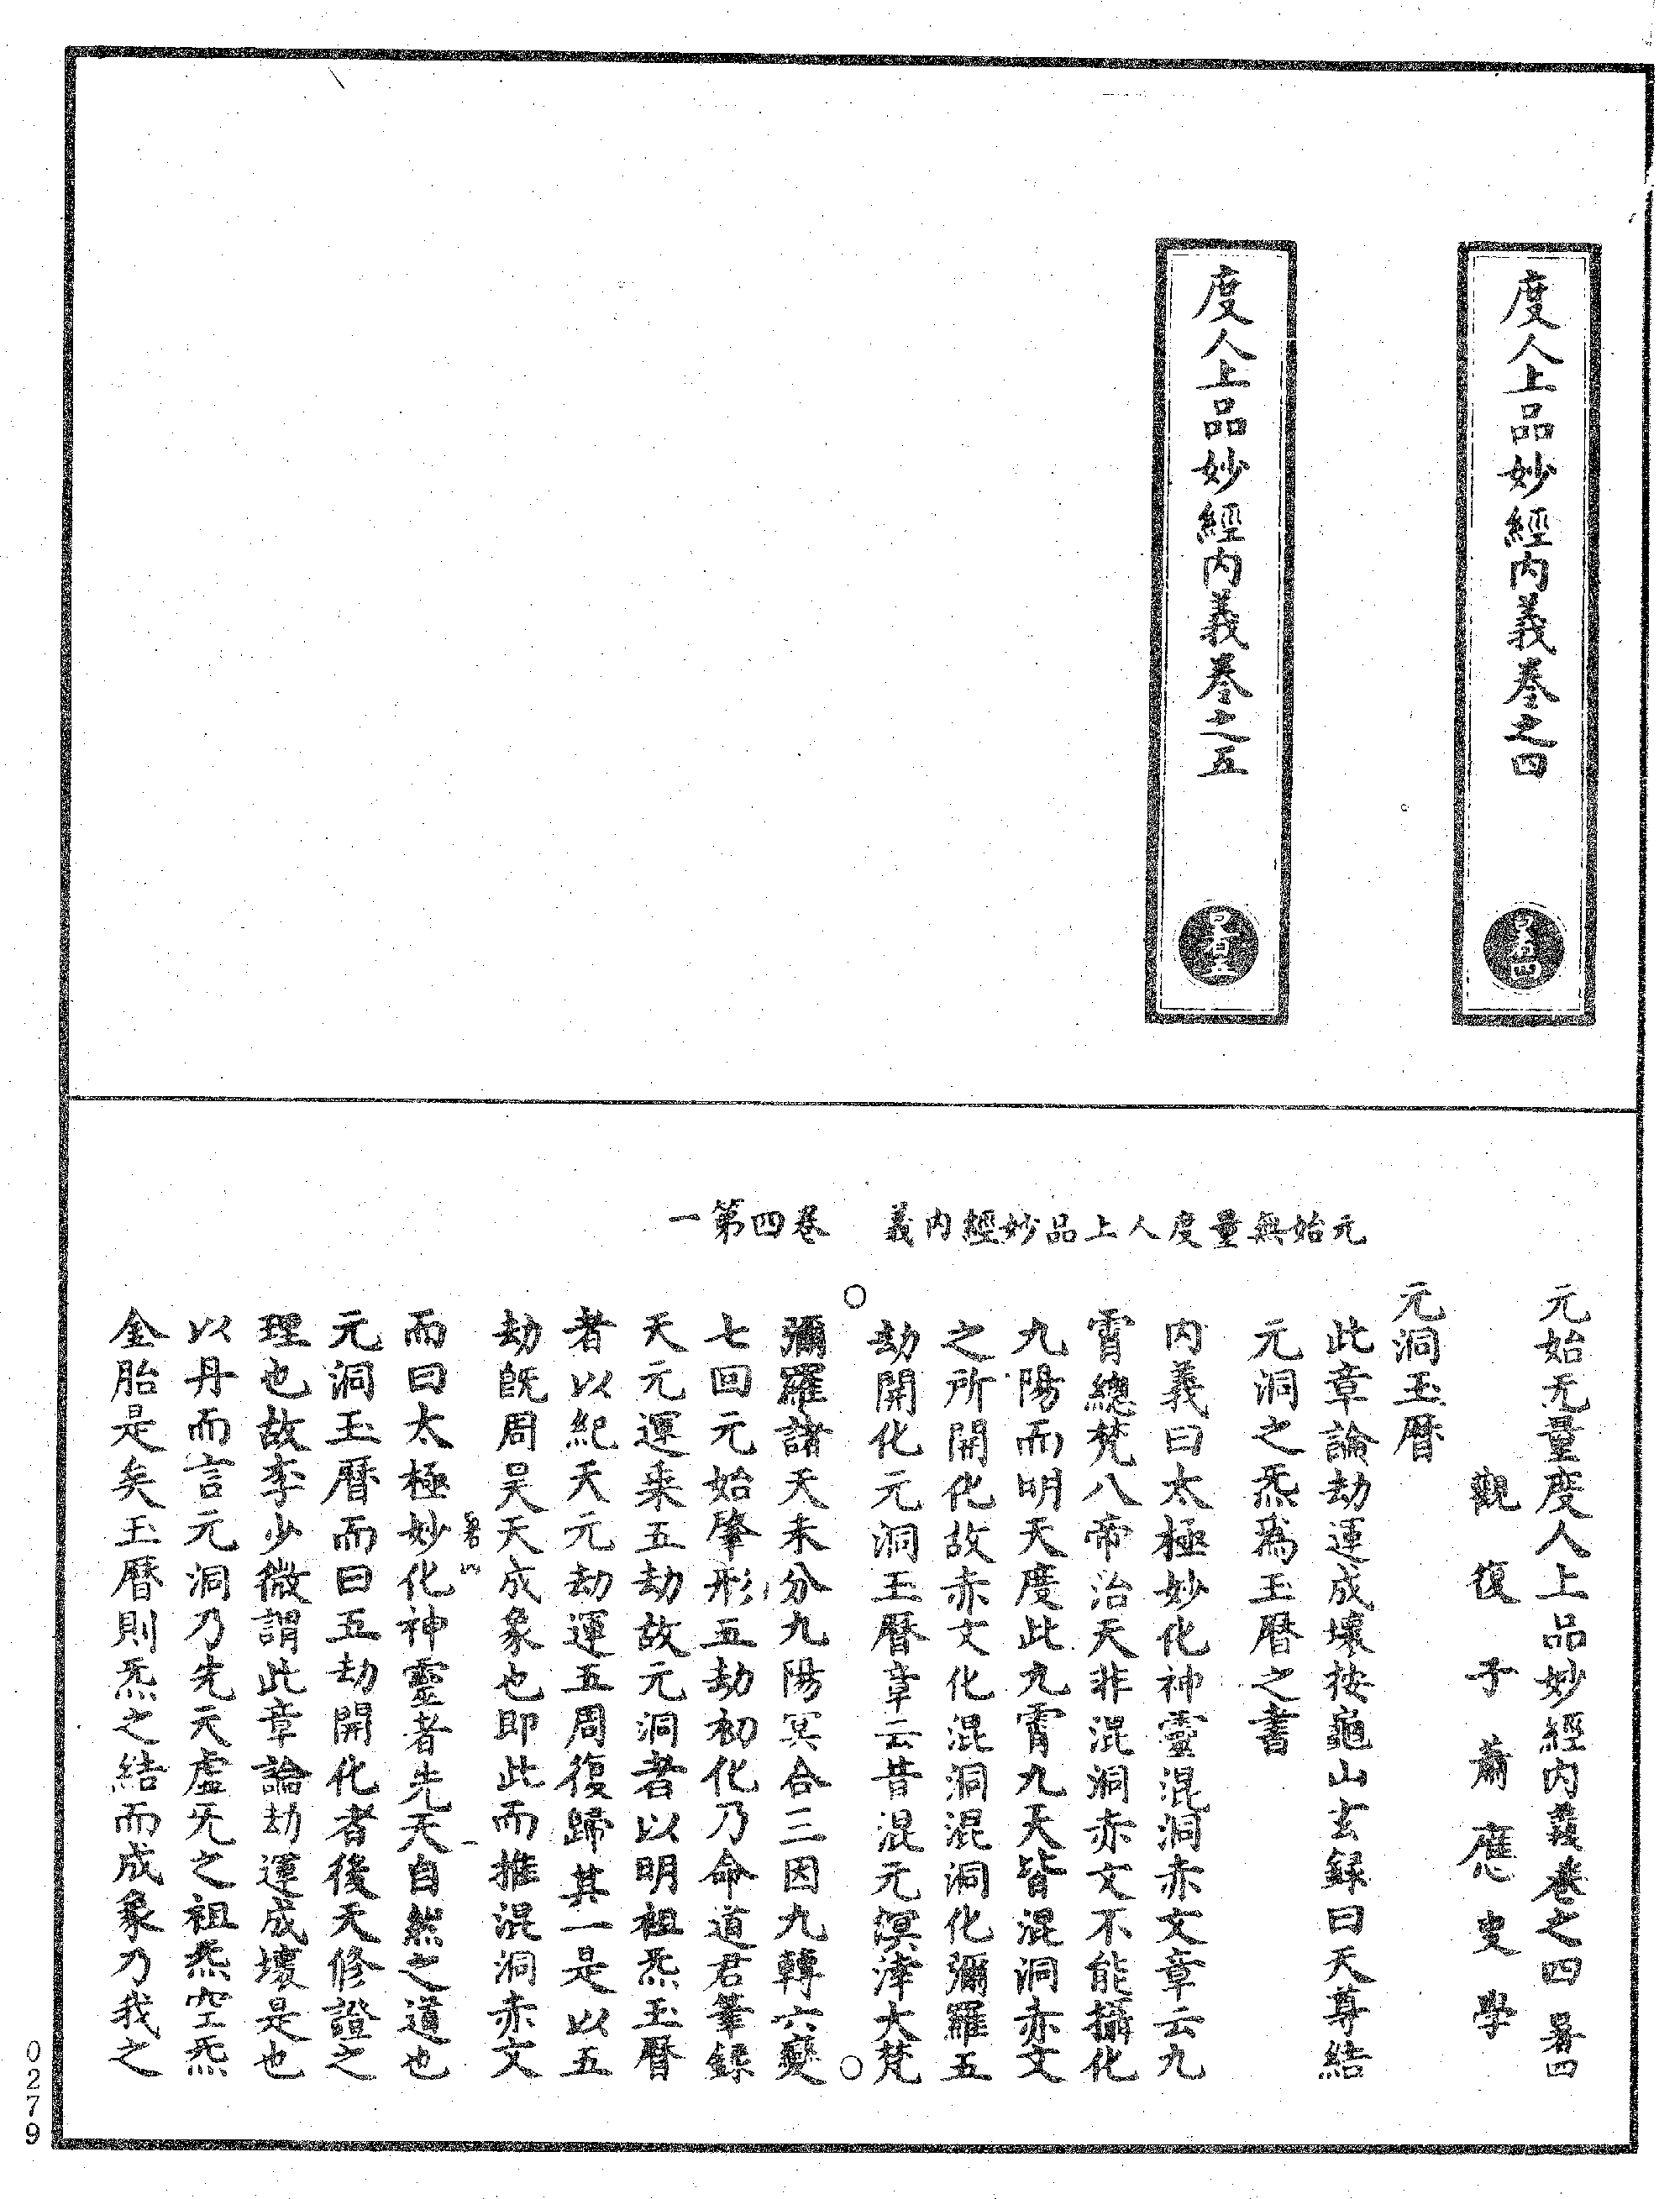 度人上品妙經內義卷之四
暑四
度人上品妙經內義卷之五
暑五
元始無量度人上品妙經內義 卷四第一
元始无量度人上品妙經內義卷之四 暑四
觀復子蕭應叟學
元洞玉曆
此章論劫運成壞按龜山玄籙曰天尊結
元洞之炁為玉曆之書
內義曰太極妙化神靈混洞赤文章云九
霄總梵八帝治天非混洞赤文不能攝化
九陽而明天度此九霄九天皆混洞赤文
之所開化故赤文化混洞混洞化彌羅五
劫開化元洞玉曆章云昔混元溟涬大梵
彌羅諸天未分九陽冥合三因九轉六變
七回元始肇形五劫初化乃命道君筆錄
天元運來五劫故元洞者以明祖炁玉曆
者以紀天元劫運五周復歸其一是以五
劫既周昊天成象也即此而推混洞赤文
暑四 一
而曰太極妙化神靈者先天自然之道也
元洞玉曆而曰五劫開化者後天修證之
理也故李少微謂此章論劫運成壞是也
以丹而言元洞乃先天虛无之祖炁空炁
金胎是矣玉曆則炁之結而成象乃我之
0279